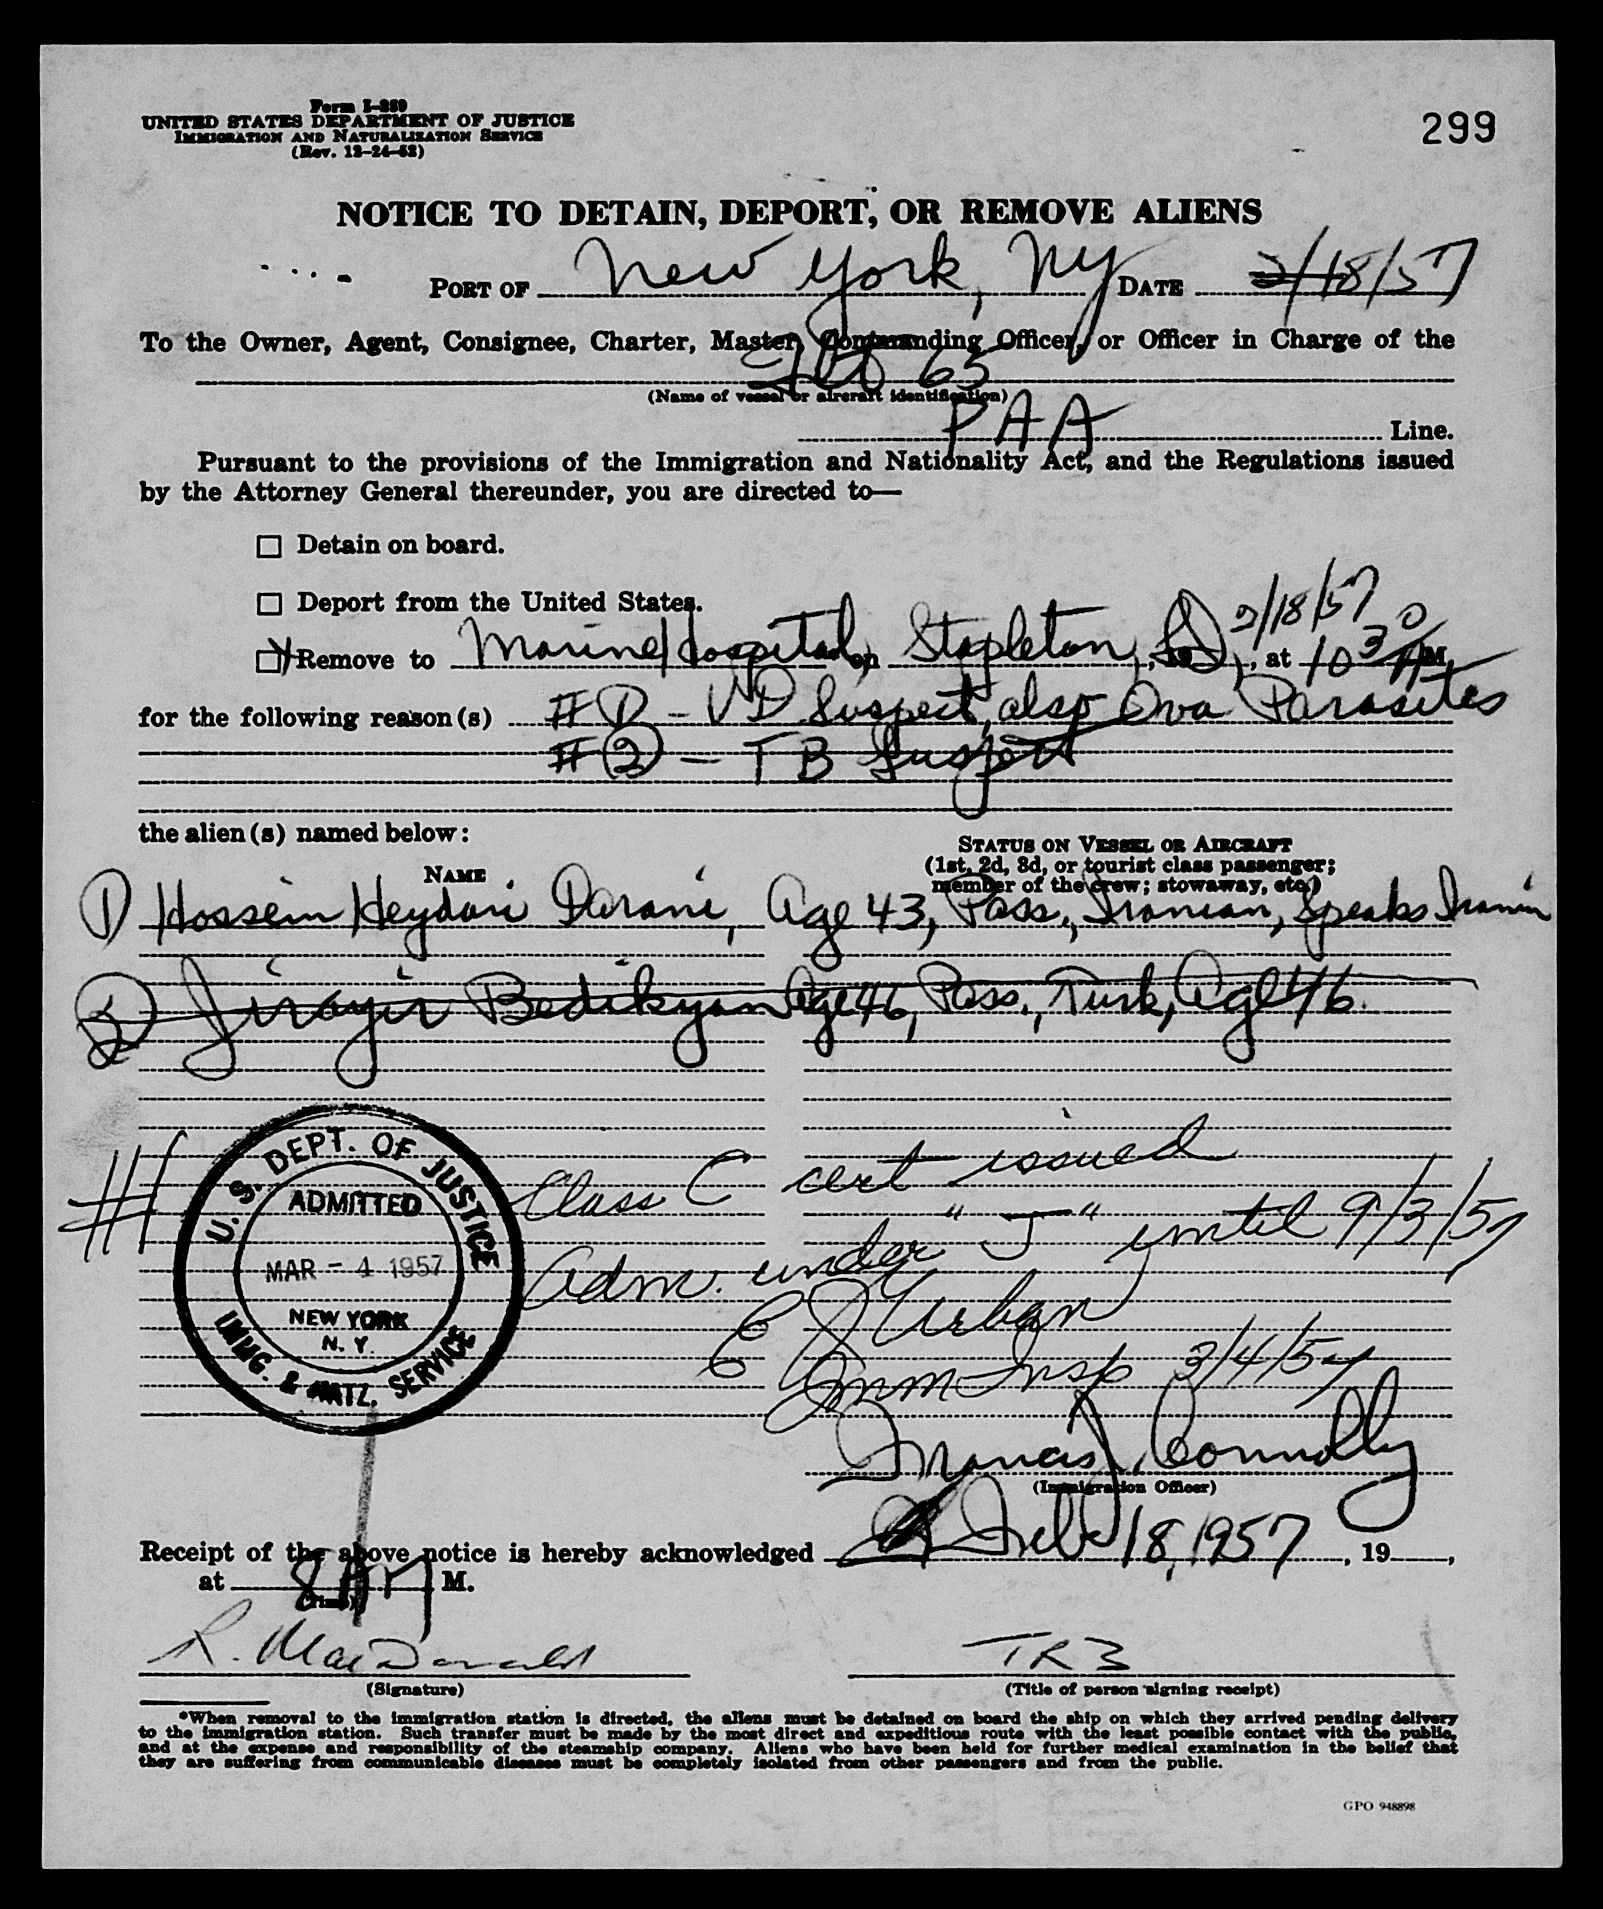 Form I-259
UNITED STATES DEPARTMENT OF JUSTICE
IMMIGRATION AND NATURALIZATION SERVICE
(Rev. 12-24-52)
299
NOTICE TO DETAIN, DEPORT, OR REMOVE ALIENS
PORT OF New York, NY DATE 2/18/57
To the Owner, Agent, Consignee, Charter, Master, Commanding Officer, or Officer in Charge of the
65
(Name of vessel or aircraft identification)
PAA Line.
Pursuant to the provisions of the Immigration and Nationality Act, and the Regulations issued
by the Attorney General thereunder, you are directed to—
Detain on board.
Deport from the United States.
Remove to Marine Hospital, on Stapleton, SI, 2/18/57, at 10 30 A M.
for the following reason(s) # 1 - VD Suspect, also Ova Parasites
# 2 - TB Suspect
the alien(s) named below:
NAME
STATUS ON VESSEL OR AIRCRAFT
(1st, 2d, 3d, or tourist class passenger;
member of the crew; stowaway, etc.)
1 Hossein Heydari Darani, Age 43, Pass., Iranian, Speaks Iranian
2 Jirayir Bedikyan Age 46, Pass., Turk, Age 46.
#1
U. S. DEPT. OF JUSTICE
ADMITTED
MAR - 4 1957
NEW YORK
N. Y.
IMMG. & NATZ. SERVICE
Class C cert issued
Adm. under " J " until 9/3/57
E J Urban
Imm Insp 3/4/57
Francis J. Connolly
(Immigration Officer)
Receipt of the above notice is hereby acknowledged Feb 18, 1957, 19 ,
at 8 AM M.
(Time)
R. MacDonald
TR3
(Signature)
(Title of person signing receipt)
*When removal to the immigration station is directed, the aliens must be detained on board the ship on which they arrived pending delivery
to the immigration station. Such transfer must be made by the most direct and expeditious route with the least possible contact with the public,
and at the expense and responsibility of the steamship company. Aliens who have been held for further medical examination in the belief that
they are suffering from communicable diseases must be completely isolated from other passengers and from the public.
GPO 948898